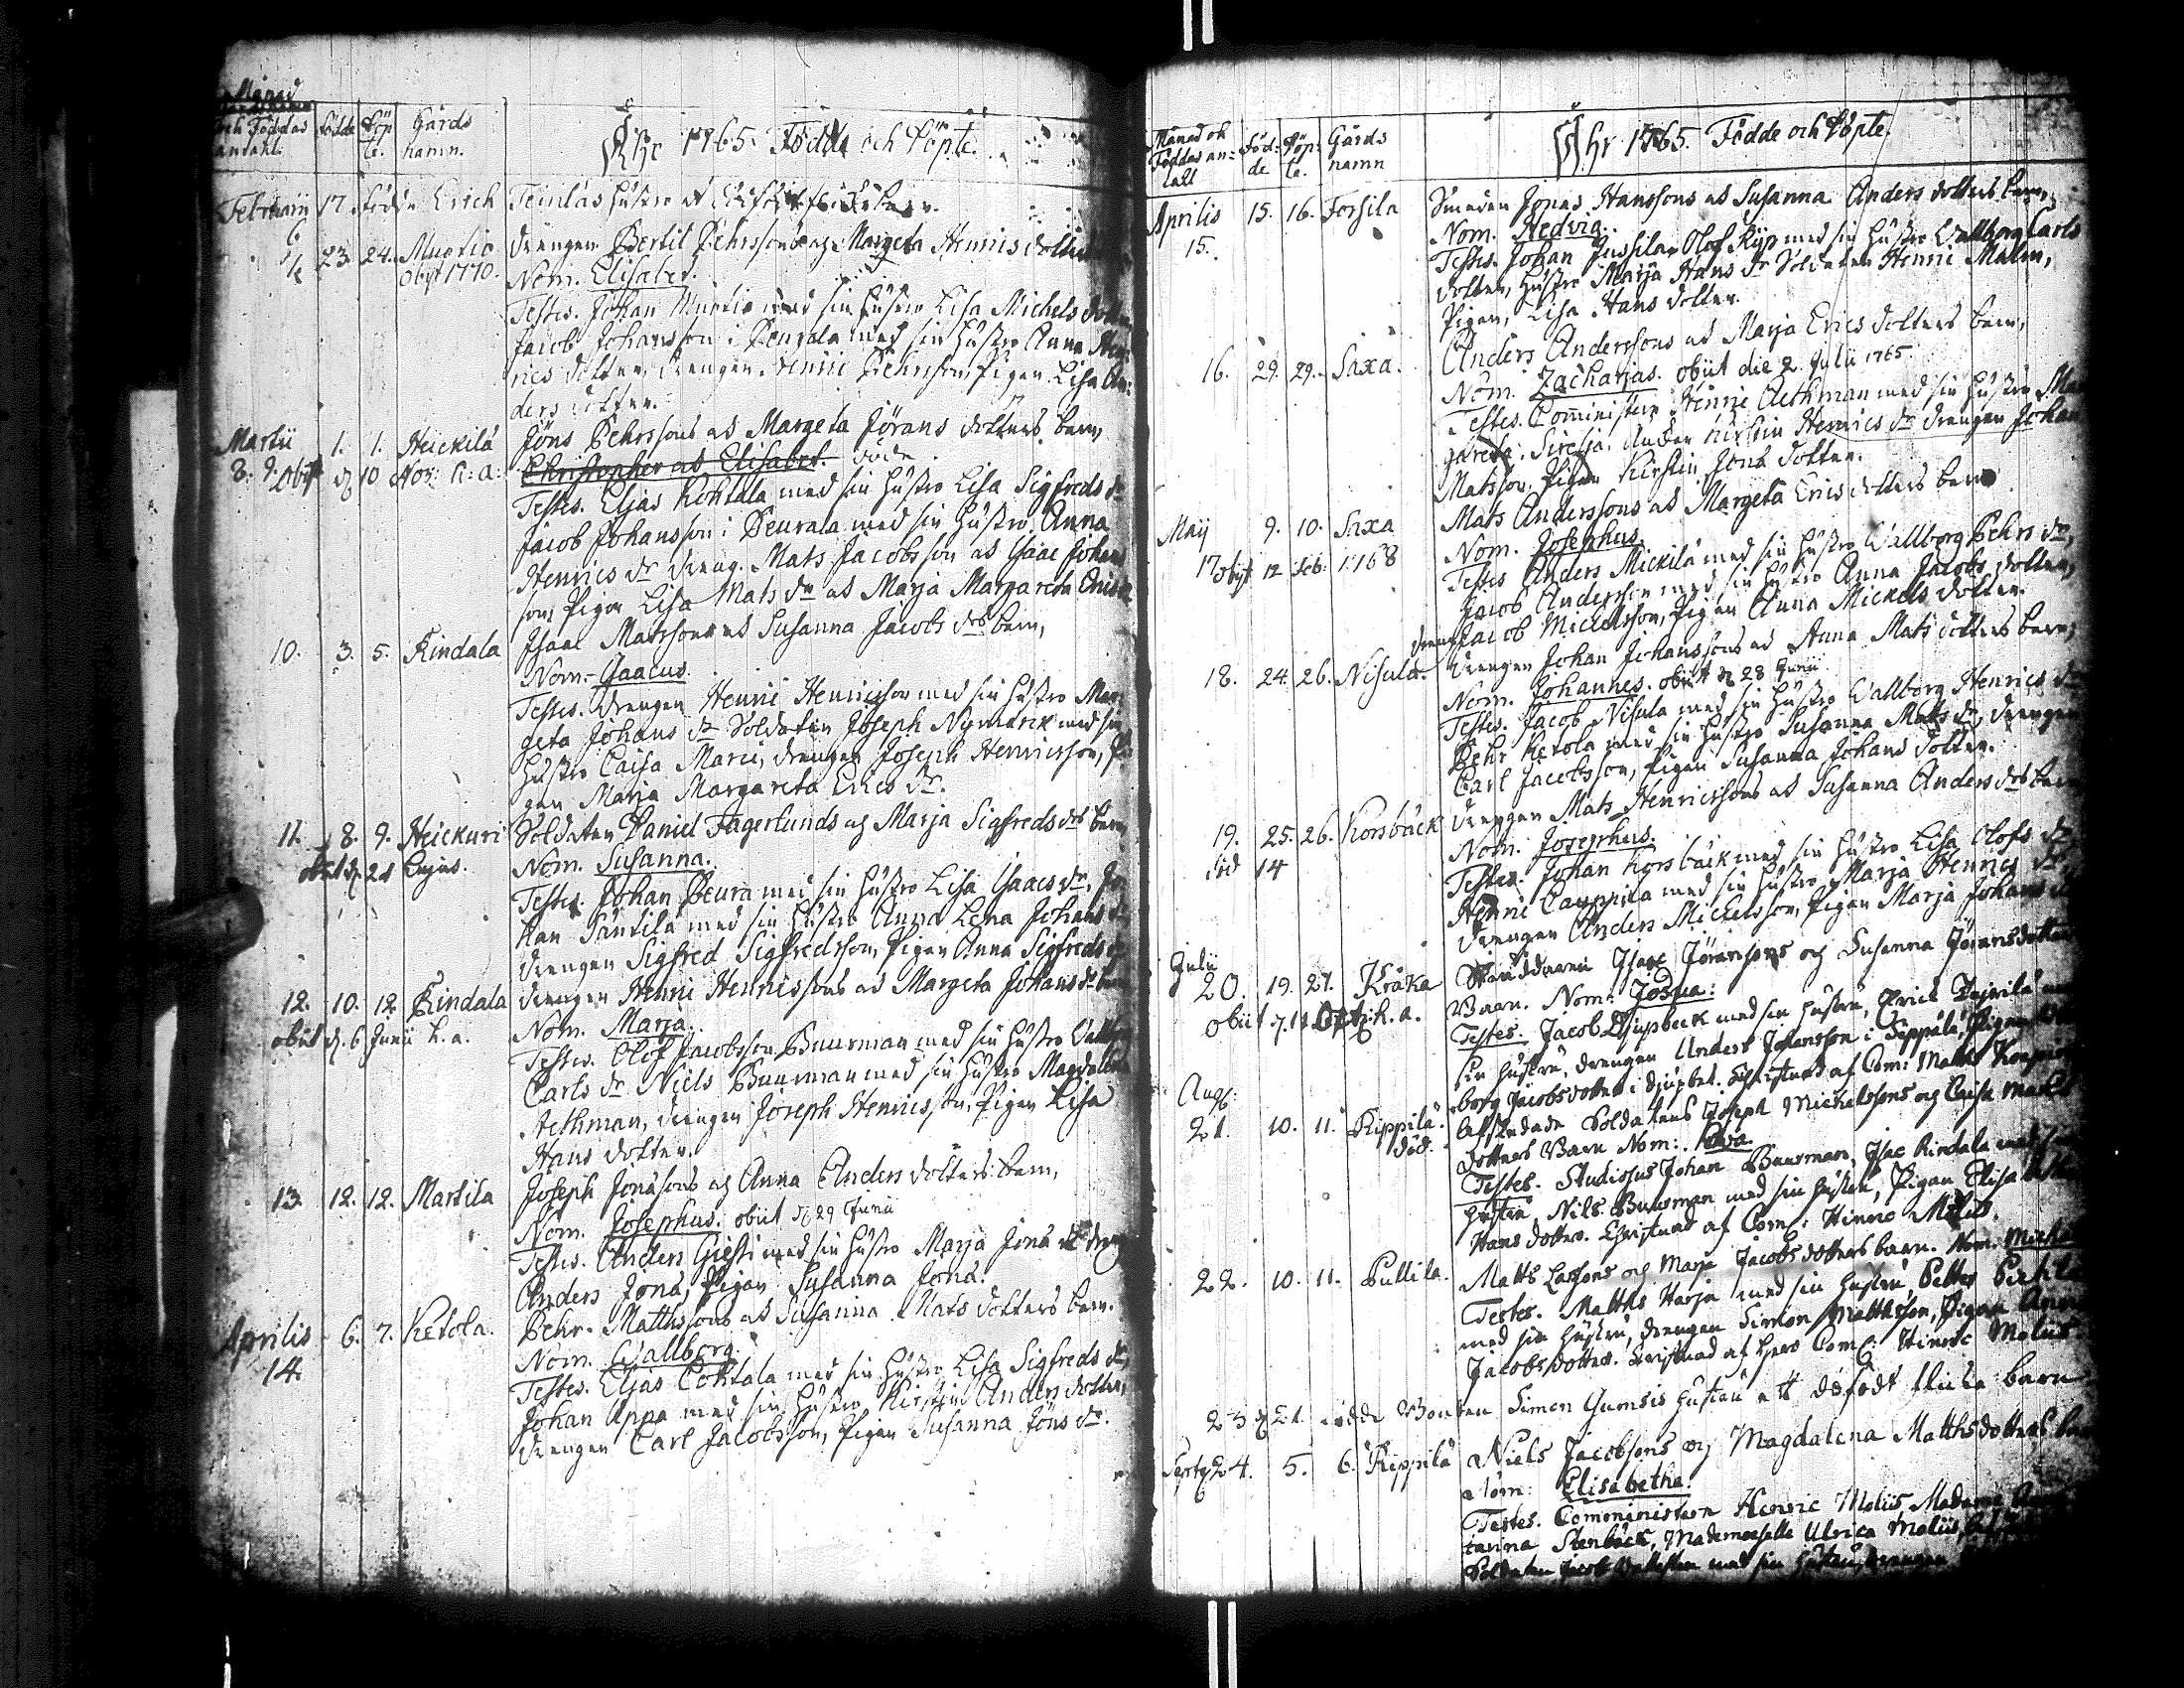 Månad
och Föddas Födde Döp Gårds
antahl. te. namn.
Åhr 1765. Födde och Döpte.
Februarii 17. födde Erich Teinlas hustro
6
23. 24. Muurio Drengen Bertil Pehrssons och Margeta Henrics dotters
obijt 1770. Nom. Elisabet.
Testes. Johan Muurio med sin hustro Lisa Michels dotter
Jacob Johansson i Peurala med sin hustro Anna Hen-
rics dotter, drengen Henric Pehrsson, Pigan Lisa An-
ders dotter.
Martii 1. 1. Heickilä Jöns Pehrssons och Margeta Jörans dotters barn,
8. 9. obijt d. 10 Nov: h: a: Christopher och Elisabet. döde
Testes. Eljas Kohtala med sin hustro Lisa Sigfreds dr
Jacob Johansson i Peurala med sin hustro Anna
Henrics dr dreng. Mats Jacobsson och Isaac Johans
son, Pigan Lisa Mats dr och Marja Margareta Erics
10. 3. 5. Rindala Isaac Matssons och Susanna Jacobs drs barn,
Nom. Isaacus.
Testes. Drengen Henric Henricsson med sin hustro Mar-
geta Johans dr Soldaten Joseph Nymarck med sin
hustro Caisa Marie, drengen Joseph Henricsson, Pi-
gan Maria Margareta Erics dr.
11. 8. 9. Heickuri Soldaten Daniel Fagerlunds och Marja Sigfreds drs barn,
obiit d. 21 Nom. Susanna.
Testes. Johan Peura med sin hustro Lisa Isaacs dr, Jo-
han Säntilä med sin hustro Anna Lena Johans dr
drengen Sigfred Sigfredsson, Pigan Anna Sigfreds dr
12. 10. 12. Rindala drengen Henric Henricssons och Margeta Johans dr barn
obiit d. 6 Junii h. a. Nom. Marja.
Testes. Olof Jacobsson Buurman med sin hustro Wallborg
Carls dr Niels Buurman med sin hustro Magdalena
Aethman, drengen Joseph Henricsson, Pigan Lisa
Hans dotter.
13. 12. 12. Martila Joseph Jonäsons och Anna Anders dotters barn,
Nom. Josephus. obiit d. 29 Junii
Testes. Anders Giessi med sin hustro Marja Jonä dr dreng
Anders Jonä, Pigan Susanna Jonä.
Aprilis 6. 7. Ketola. Pehr Matthssons och Susanna Mats dotters barn.
14. Nom. Wallborg.
Testes. Eljas Cohtala med sin hustro Lisa Sigfreds dr,
Johan Uppa med sin hustro Kirstin Anders dotter,
drengen Carl Jacobsson, Pigan Susanna Jöns dr.
Månad och Föd: Döp: Gårds
Föddas an- de te. namn
tahl
Åhr 1765. Födde och Döpte.
Aprilis 15. 16. Forsila Smeden Jonas Hanssons och Susanna Anders dotters barn,
15. Nom. Hedvig.
Testes. Johan Jussila, Olof Ryss med sin hustro Wallborg Carls
dotter, hustro Marja Hans dr Soldaten Henric Malm,
Pigan, Lisa Hans dotter.
16. 29. 29. Saxa. Anders Anderssons och Marja Erics dotters barn,
Nom. Zacharjas. obiit die 2 Julii 1765.
Testes. Comministern Henric Aethman med sin hustro Mar
gareta Sirelia, Enckan Kirstin Henrics dr drengen Johan
Matsson, Pigan Kirstin Jonä dotter.
May 9. 10. Saxa Mats Anderssons och Margeta Erics dotters barn
17 obijt 12 Feb: 1768 Nom. Josephus.
Testes Anders Mickilä med sin hustro Wallborg Pehrs dr,
Jacob Andersson med sin hustro Anna Jacobs dotter,
drengen Jacob Mickelsson, Pigan Anna Mickels dotter.
18. 24. 26. Nisula. Drengen Johan Johanssons och Anna Mats dotters barn,
Nom. Johannes. obiit d. 28 Junii
Testes. Jacob Nisula med sin hustro Wallborg Henrics dr
Pehr Ketola med sin hustro Susanna Mats dr, drengen
Carl Jacobsson, Pigan Susanna Johans dotter.
19. 25. 26. Korsbäck Drengen Mats Henricssons och Susanna Anders drs barn
död 14 Nom. Josephus.
Testes. Johan Korsbäck med sin hustro Lisa Olofs dr
Henric Cauppila med sin hustro Marja Henrics dr
drengen Anders Mickelsson, Pigan Marja Johans dr
Julii
20. 19. 21. Kråka Isaac Jöranssons og Susanna Jöransdotters
obiit d. 11 h. a. Barn. Nom: Josua:
Testes. Jacob Djupbeck med sin hustru, Erick med
sin hustru, drengen Anders Johansson i Seppälä, Pigan
borg Jacobsdotter i Djupbek. Christnad af Com: Matts
Aug:
21. 10. 11. Rippilä. Afskedade Soldatens Joseph Michelssons og Caisa Matts
död. dotters Barn Nom: Eva.
Testes. Studiosus Johan Buurman, Isac Rindala med sin
hustru Nils Buurman med sin hustru, Pigan Elisabeth
Hans dotter. Christnad af Com: Hinric Melius.
22. 10. 11. Pullila. Matts Larssons og Marja Jacobs dotters barn. Nom: Michel
Testes. Matths Harja med sin hustru, Petter
med sin hustru, drengen Simon Matthsson, Pigan Anna
Jacobsdotter. Christnad af Herr Com: Hinric Melius
23 d. 21. födde Bonden Simon Gumsis hustru ett dödfödt flicke barn
Septb. 24. 5. 6. Rippilä Niels Jacobssons og Magdalena Matthsdotters barn
Nom: Elisabetha.
Testes. Comministern Henric Melius Madame
Stenbäck, Mademoiselle Ulrica Melius,
Soldaten Jacob med sin hustru, drengen